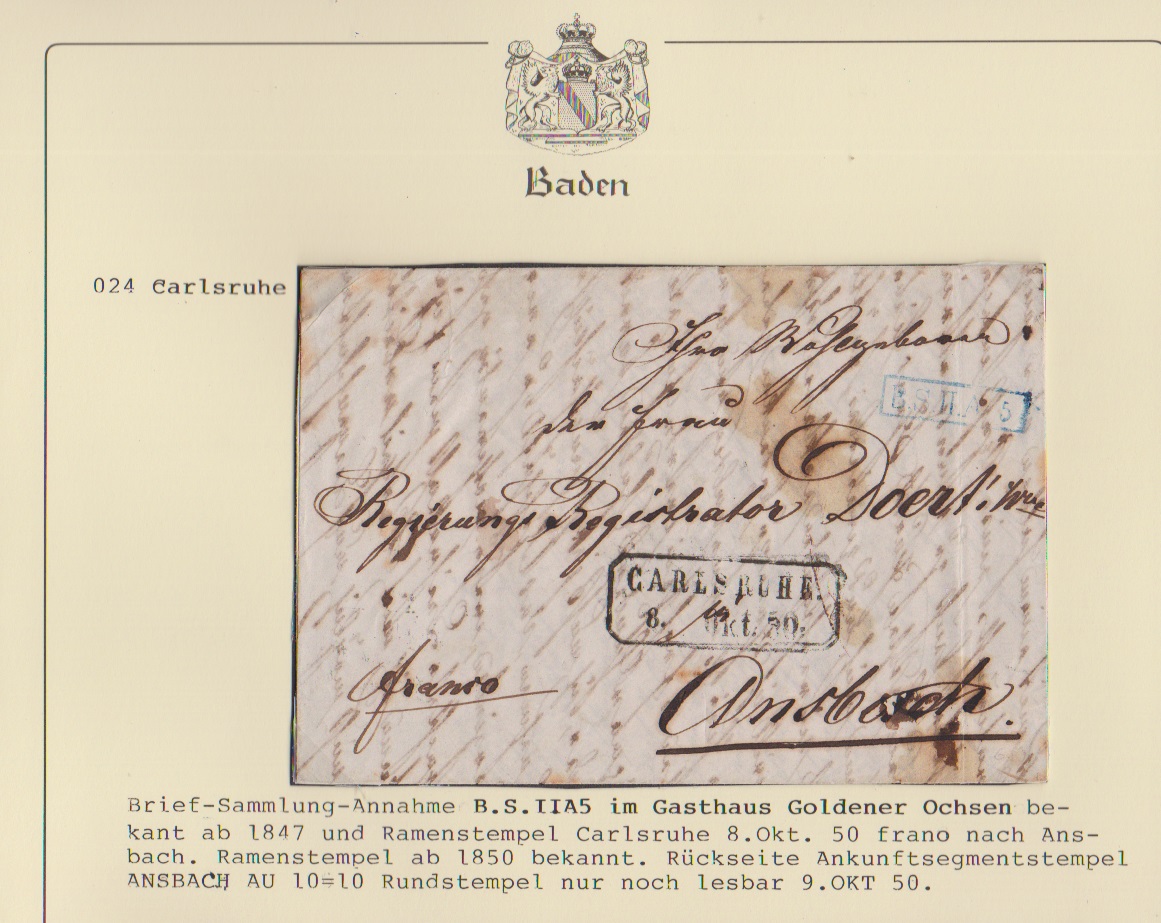 Baden
024 Carlsruhe
Ihro Wohlgeboren
B.S.II.A 5
der Frau
Regierungs Registrator Doert
CARLSRUHE.
8. Okt. 50.
franco
Ansbach.
Brief-Sammlung-Annahme B.S.IIA5 im Gasthaus Goldener Ochsen be-
kant ab 1847 und Ramenstempel Carlsruhe 8.Okt. 50 frano nach Ans-
bach. Ramenstempel ab 1850 bekannt. Rückseite Ankunftsegmentstempel
ANSBACH AU 10=10 Rundstempel nur noch lesbar 9.OKT 50.